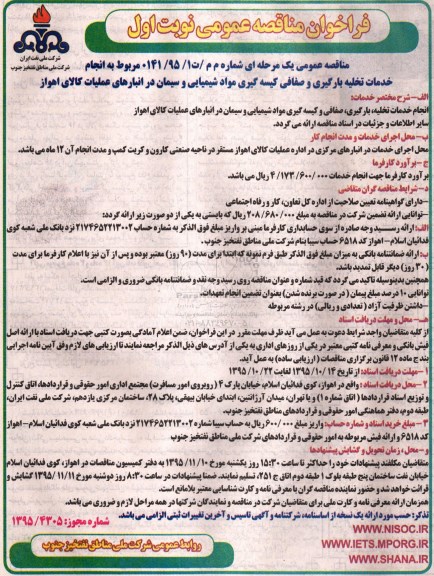 فراخوان مناقصه عمومی نوبت اول
شرکت ملی نفت ایران
شرکت ملی مناطق نفتخیز جنوب
مناقصه عمومی یک مرحله ای شماره م م /ت۱/ ۹۵/ ۰۱۴۱ مربوط به انجام
خدمات تخلیه بارگیری و صفافی کیسه گیری مواد شیمیایی و سیمان در انبارهای عملیات کالای اهواز
الف- شرح مختصر خدمات:
انجام خدمات تخلیه، بارگیری، صفافی و کیسه گیری مواد شیمیایی و سیمان در انبارهای عملیات کالای اهواز
سایر اطلاعات و جزئیات در اسناد مناقصه ارائه می گردد.
ب- محل اجرای خدمات و مدت انجام کار
محل اجرای خدمات در انبارهای مرکزی در اداره عملیات کالای اهواز مستقر در ناحیه صنعتی کارون و کریت کمپ و مدت انجام آن ۱۲ ماه می باشد.
ج- برآورد کارفرما
برآورد کارفرما جهت انجام خدمات ۴/۱۷۳/۶۰۰/۰۰۰ ریال می باشد.
د- شرایط مناقصه گران متقاضی
-دارای گواهینامه تعیین صلاحیت از اداره کل تعاون، کار و رفاه اجتماعی
-توانایی ارائه تضمین شرکت در مناقصه به مبلغ ۲۰۸/۶۸۰/۰۰۰ ریال که بایستی به یکی از دو صورت زیر ارائه گردد:
الف: ارائه رسید وجه صادره از سوی حسابداری کارفرما مبنی بر واریز مبلغ فوق الذکر به شماره حساب ۲۱۷۴۶۵۲۲۱۳۰۰۲ نزد بانک ملی شعبه کوی
فدائیان اسلام- اهواز کد ۶۵۱۸ حساب سیبا بنام شرکت ملی مناطق نفتخیز جنوب.
ب: ارائه ضمانتنامه بانکی به میزان مبلغ فوق الذکر طبق فرم نمونه که ابتدا برای مدت (۹۰ روز) معتبر بوده و پس از آن نیز با اعلام کارفرما برای مدت
(۳۰ روز) دیگر قابل تمدید باشد.
همچنین بدینوسیله تاکید می گردد که قید شماره و عنوان مناقصه روی رسید وجه نقد و ضمانتنامه بانکی ضروری و الزامی است.
توانایی ۱۰ درصد مبلغ پیمان (در صورت برنده شدن) بعنوان تضمین انجام تعهدات.
-داشتن ظرفیت آزاد (تعدادی و ریالی) در رشته مربوطه
هـ- محل و مهلت دریافت اسناد
از کلیه متقاضیان واجد شرایط دعوت به عمل می آید ظرف مهلت مقرر در این فراخوان، ضمن اعلام آمادگی بصورت کتبی جهت دریافت اسناد با ارائه اصل
فیش بانکی و معرفی نامه کتبی معتبر در یکی از روزهای اداری به یکی از آدرس های ذیل الذکر مراجعه نمایند تا ارزیابی های لازم وفق آیین نامه اجرایی
بند ج ماده ۱۲ قانون برگزاری مناقصات (ارزیابی ساده) به عمل آید.
۱- مهلت دریافت اسناد: از تاریخ ۱۳۹۵/۱۰/۱۴ لغایت ۱۳۹۵/۱۰/۲۲
۲- محل دریافت اسناد: واقع در اهواز، کوی فدائیان اسلام، خیابان پارک ۴ (روبروی امور مسافرت) مجتمع اداری امور حقوقی و قراردادها، اتاق کنترل
و توزیع اسناد قراردادها (اتاق شماره ۱) و یا تهران، میدان آرژانتین، ابتدای خیابان بیهقی، پلاک ۲۸، ساختمان مرکزی یازدهم، شرکت ملی نفت ایران،
طبقه دوم، دفتر هماهنگی امور حقوقی و قراردادهای مناطق نفتخیز جنوب.
۳- مبلغ خرید اسناد و شماره حساب: واریز مبلغ ۶۰۰/۰۰۰ ریال به حساب سیبا شماره ۲۱۷۴۶۵۲۲۱۳۰۰۲ نزد بانک ملی شعبه کوی فدائیان اسلام- اهواز
کد ۶۵۱۸ و ارائه فیش مربوطه به امور حقوقی و قراردادهای شرکت ملی مناطق نفتخیز جنوب
و- محل، زمان تحویل و گشایش پیشنهادها
متقاضیان مکلفند پیشنهادات خود را حداکثر تا ساعت ۱۵:۳۰ روز یکشنبه مورخ ۱۳۹۵/۱۱/۱۰ به دفتر کمیسیون مناقصات در اهواز، کوی فدائیان اسلام
خیابان نفت ساختمان پنج طبقه بلوک ۱ طبقه دوم اتاق ج ۲۵۱، تسلیم نمایند. ضمنا پیشنهادات در ساعت ۸:۳۰ روز دوشنبه مورخ ۱۳۹۵/۱۱/۱۱ گشایش و
قرائت خواهد شد و حضور نماینده مناقصه گران با معرفی نامه و کارت شناسایی معتبر بلامانع است.
همزمان ارائه معرفی نامه و کارت ملی برای متقاضیان شرکت در مناقصه و نمایندگان شرکتها در همه مراحل لازم و ضروری می باشد.
تذکر: حسب مورد ارائه یک نسخه از اساسنامه، شرکتنامه و آگهی تاسیس و آخرین تغییرات ثبتی الزامی می باشد.
شماره مجوز: ۱۳۹۵/۴۳۰۵
WWW.NISOC.IR
WWW.IETS.MPORG.IR
WWW.SHANA.IR
روابط عمومی شرکت ملی مناطق نفتخیز جنوب